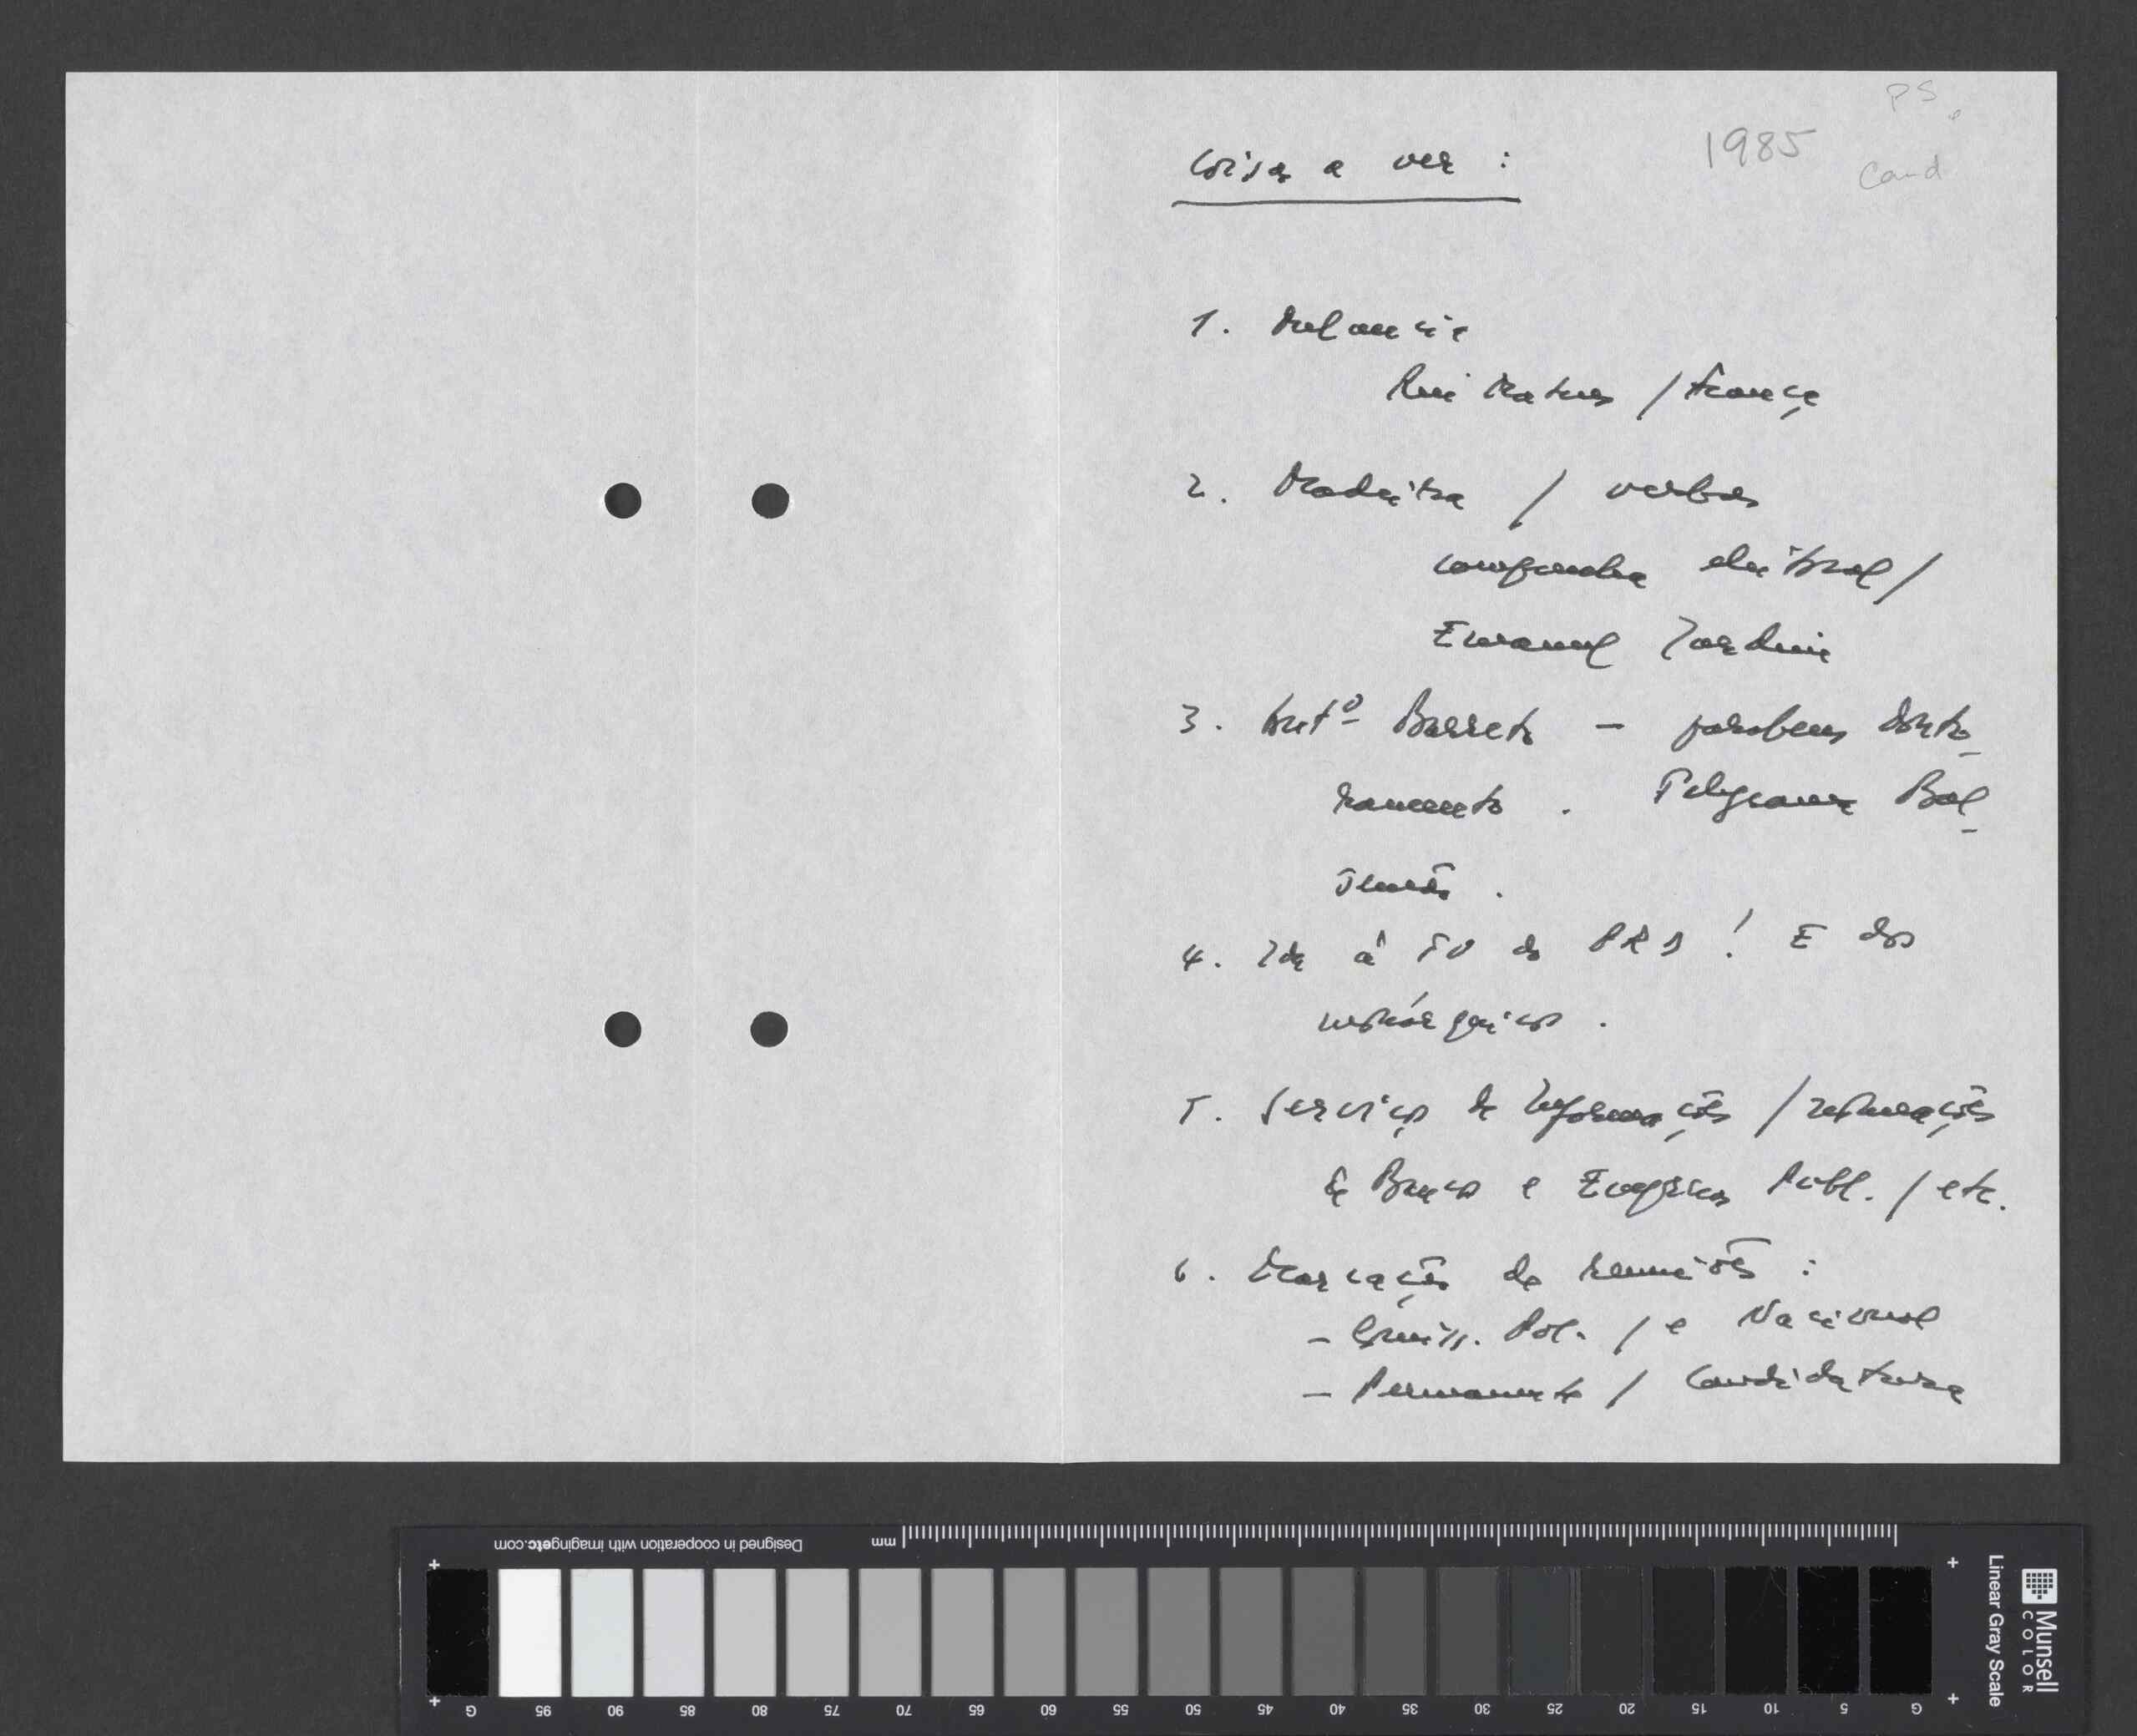 PS e
1985
Cand
Coisas a ver :
1.
Rui Mateus / França
2. Madeira / verbas
campanha eleitoral /
Emanuel Jardim
3. Antº Barreto – parabens Douto-
ramento . Telegrama Bal-
semão .
4. Ida à TV do PRD ! E dos
5. Serviços de Informações / nomeações
de Bancos e Empresas Publ. / etc.
6. Marcações de reuniões :
– Comiss. Pol. / e Nacional
– Permanente / Candidatura
Designed in cooperation with imagingetc.com
mm
G 95 90 85 80 75 70 65 60 55 50 45 40 35 30 25 20 15 10 5 G
Linear Gray Scale
Munsell
COLOR